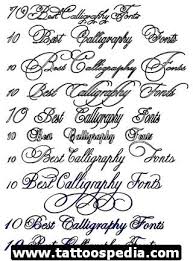 10 Best Calligraphy Fonts
10 Best Calligraphy Fonts
10 Best Calligraphy Fonts
10 Best Calligraphy Fonts
10 Best Calligraphy Fonts
10 Best Calligraphy Fonts
10 Best Calligraphy Fonts
10 Best Calligraphy Fonts
10 Best Calligraphy Fonts
10 Best Calligraphy Fonts
www.tattoospedia.com